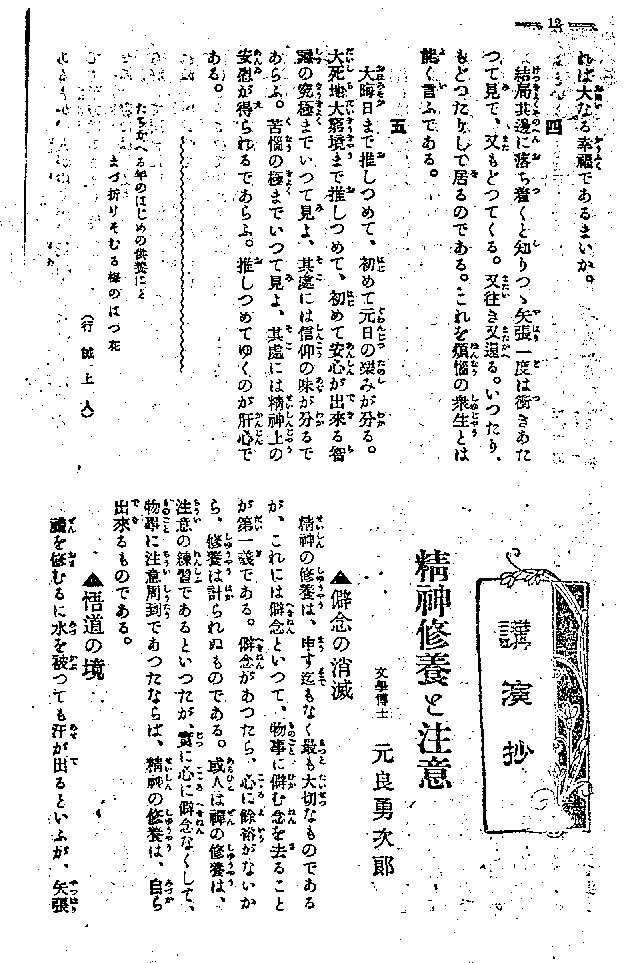 12
れば大なる幸福であるまいか。
四
結局其邊に落ち着くと知りつゝ矢張一度は衝きあた
つて見て、又もどつてくる。又往き又還る。いつたり、
もどつたりして居るのである。これを煩惱の衆生とは
能く言ふである。
五
大晦日まで推しつめて、初めて元日の樂みが分る。
大死地大窮境まで推しつめて、初めて安心が出來る智
識の究極までいつて見よ、其處には信仰の味が分るで
あらふ。苦惱の極までいつて見よ、其處には精神上の
安慰が得られるであらふ。推しつめてゆくのが肝心で
ある。
たちかへる年のはじめの供養にと
まづ折りそむる梅のはつ花
(行誡上人)
講演抄
精神修養と注意
文學博士 元良勇次郎
▲僻念の消滅
精神の修養は、申す迄もなく最も大切なものである
が、これには僻念といつて、物事に僻む念を去ること
が第一義である。僻念があつたら、心に餘裕がないか
ら、修養は計られぬものである。或人は禪の修養は、
注意の練習であるといつたが、實に心に僻念なくして、
物事に注意周到であつたならば、精神の修養は、自ら
出來るものである。
▲悟道の境
禪を修むるに水を被つても汗が出るといふが、矢張